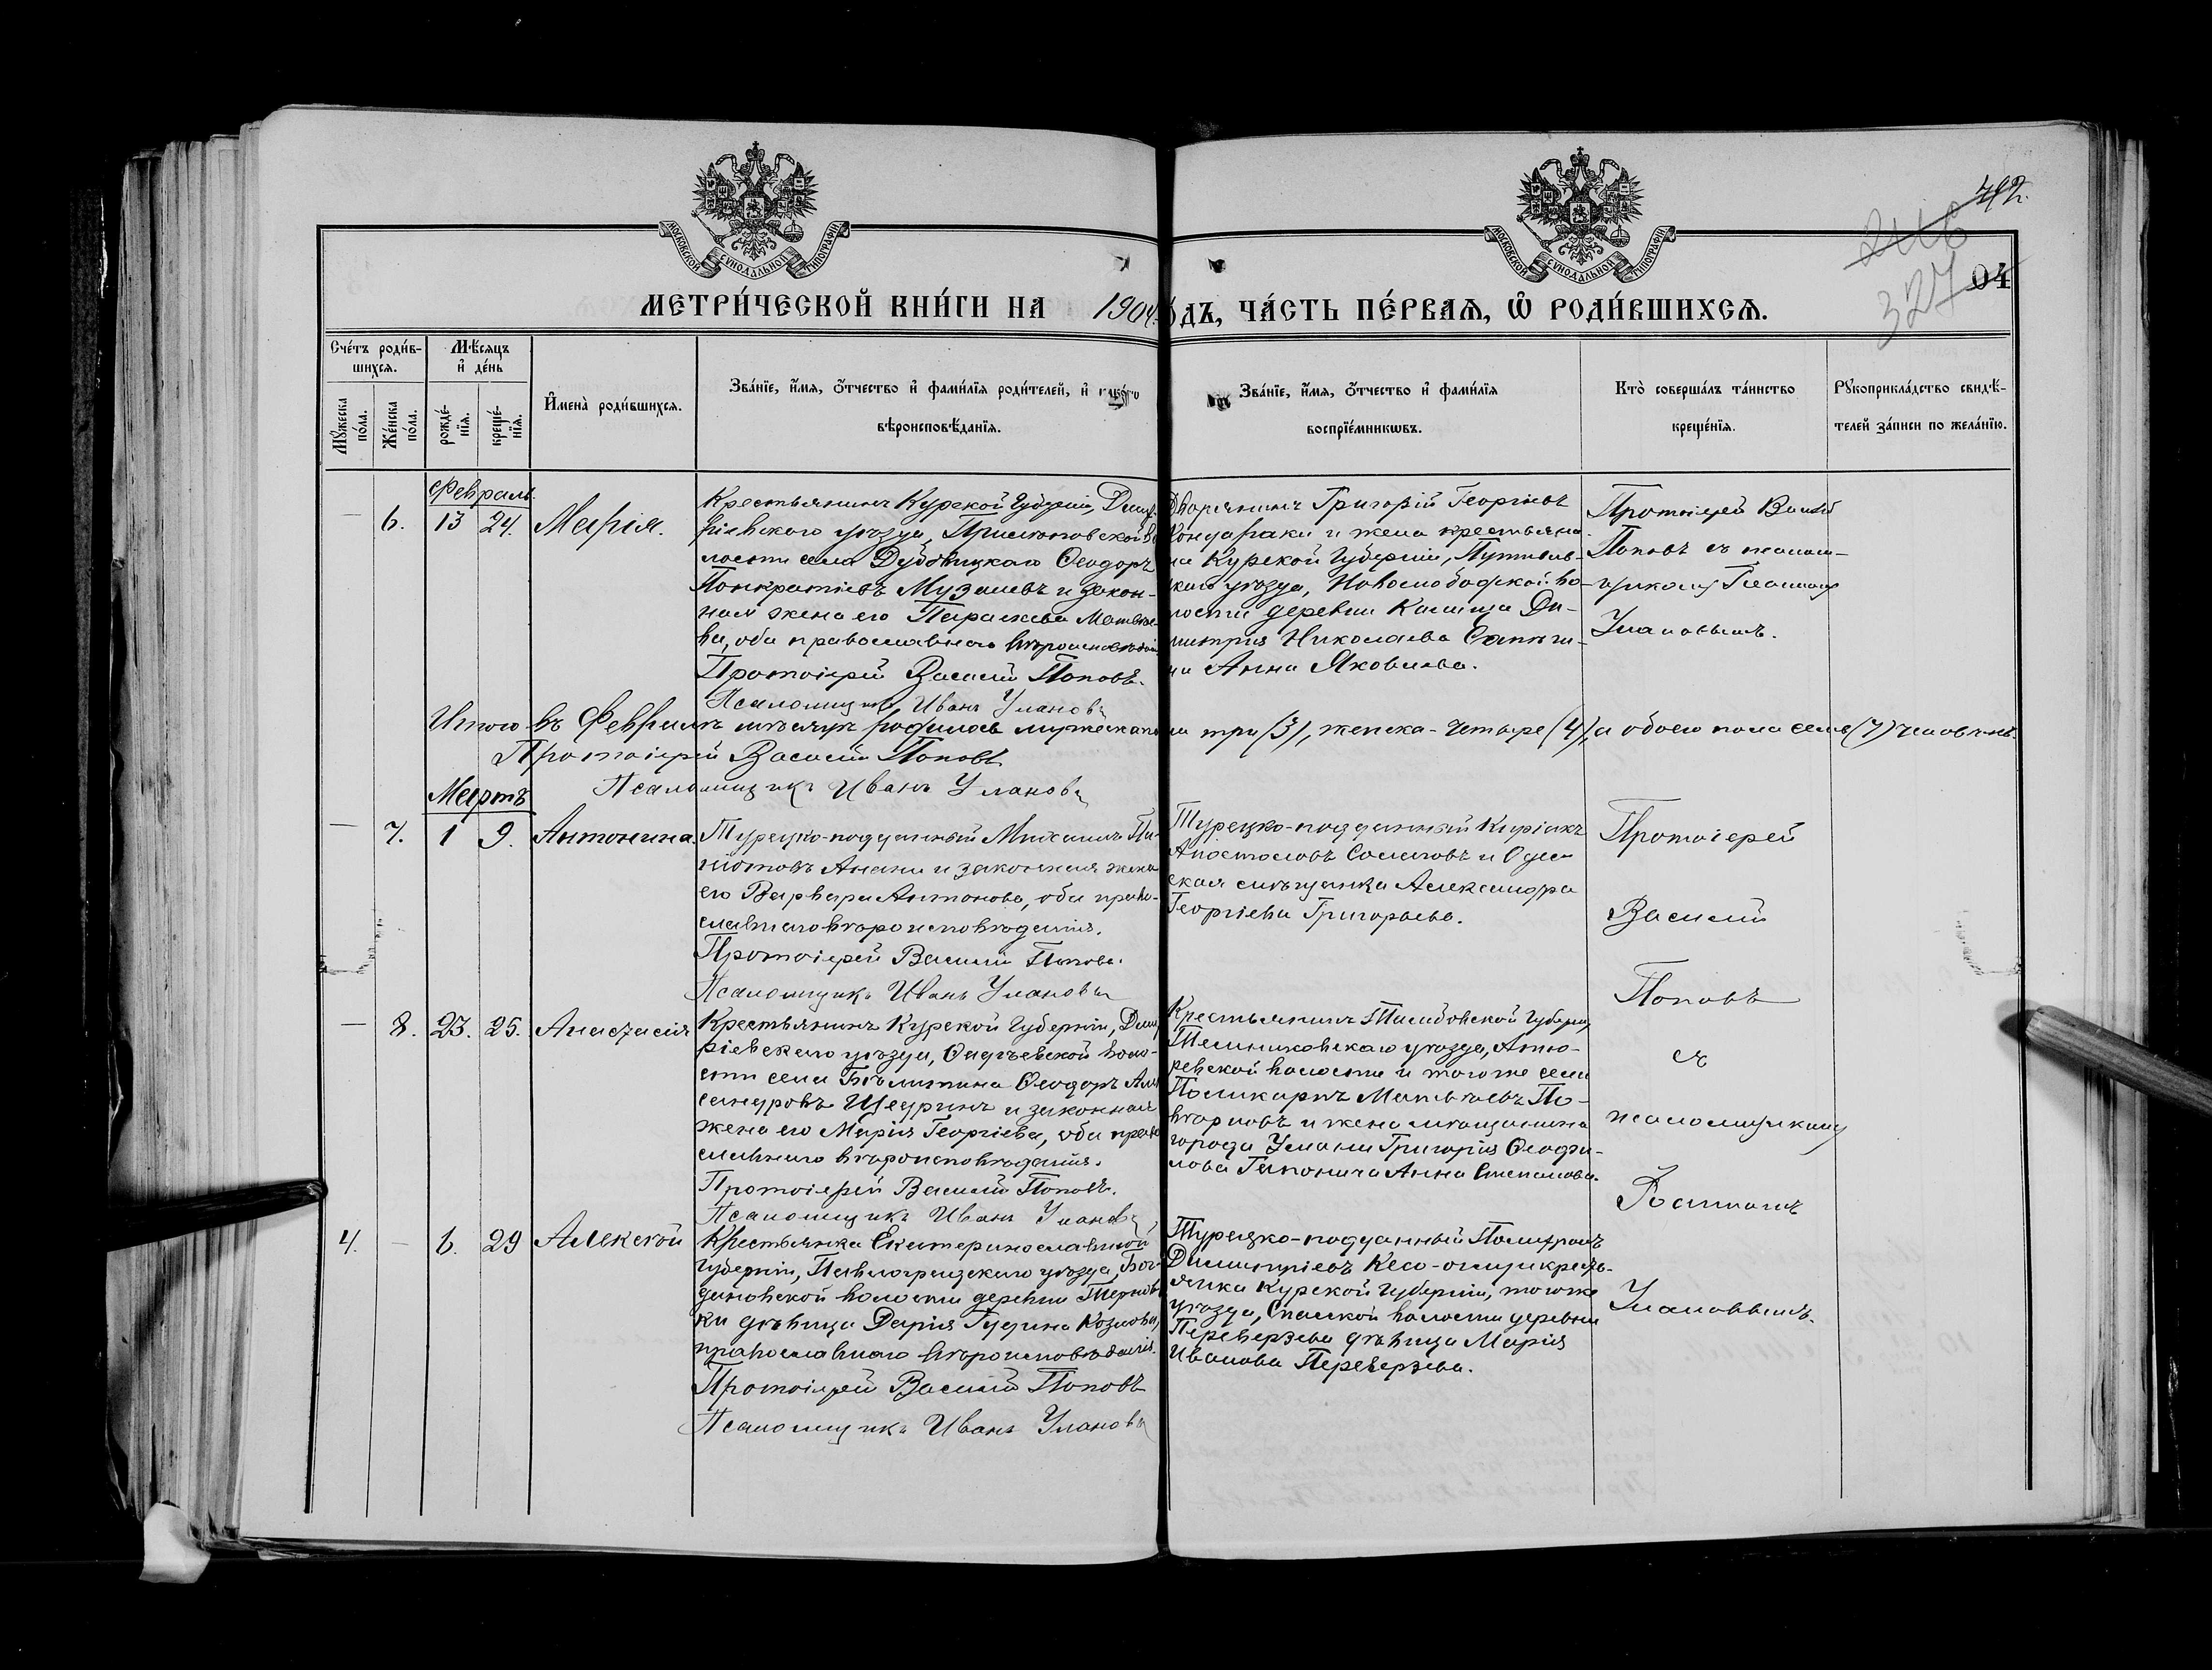 МОСКОВСКОЙ СѴНОДАЛЬНОЙ ТИПОГРАФІИ
МОСКОВСКОЙ СѴНОДАЛЬНОЙ ТИПОГРАФІИ
42.
327
04
МЕТРИ́ЧЕСКОЙ КНИ́ГИ НА 1904 ГО́ДЪ, ЧА́СТЬ ПЕ́РВАЯ, Ѽ РОДИ́ВШИХСЯ.
Сче́тъ роди́в-
шихся.
Мѣ́сяцъ
и́ де́нь
Му́жеска
по́ла.
Же́нска
по́ла.
рожде́-
нїя.
креще́-
нїя.
И́мена̀ роди́вшихся.
Зва́нїе, и́мя, ѻ́тчество и́ фами́лїя роди́телей, и́ како́гѡ
вѣроисповѣ́данїя.
Зва́нїе, и́мя, ѻ́тчество и́ фами́лїя
воспрїе́мникѡвъ.
Кто̀ соверша́лъ та́инство
креще́нїя.
Рꙋкоприкла́дство свидѣ́-
телей за́писи по жела́нїю.
Февраль.
— 6. 13 24. Марія.
Крестьянинъ Курской Губерніи, Дмит-
ріевскаго уѣзда, во-
лости села Дубовицкаго Ѳеодоръ
Понкратіевъ Музалевъ и закон-
ная жена его Параскева Матвѣе-
ва, оба православнаго вѣроисповѣданія
Протоіерей Василій Поповъ.
Псаломщикъ Иванъ Улановъ
Дворянинъ Григорій Георгіевъ
Кондараки и жена крестьяни-
на Курской Губерніи, Путивль-
скаго уѣзда, Новослободской во-
лости деревни Калища Ди-
митрія Николаева
Анна Яковлева.
Протоіерей Василій
Поповъ съ псалом-
щикомъ Іоанномъ
Улановымъ.
Итого въ Февралѣ мѣсяцѣ родилось мужеска пола три (3), женска - четыре (4), а обоего пола семь (7) человѣкъ.
Протоіерей Василій Поповъ
Псаломщикъ Иванъ Улановъ
Мартъ
— 7. 1 9. Антонина.
Турецко-подданный Михаилъ Па-
нагіотовъ Анани и законная жена
его Варвара Антонова, оба право-
славнаго вѣроисповѣданія.
Протоіерей Василій Поповъ.
Псаломщикъ Иванъ Улановъ
Турецко-подданный Киріакъ
Апостоловъ и Одес-
ская мѣщанка Александра
Георгіева Григорьева.
— 8. 23. 25. Анастасія
Крестьянинъ Курской Губерніи, Дмит-
ріевскаго уѣзда, воло-
сти села Ѳеодоръ Алек-
сандровъ Щедринъ и законная
жена его Марія Георгіева, оба право-
славнаго вѣроисповѣданія.
Протоіерей Василій Поповъ.
Псаломщикъ Иванъ Улановъ
Крестьянинъ Тамбовской Губерніи
Темниковскаго уѣзда, Атю-
ревской волости и того же села
Поликарпъ Матвѣевъ По-
и жена мѣщанина
города Умани Григорія Ѳеофи-
лова Гапонича Анна Степанова.
4. — 6. 29 Алексѣй
Крестьянка Екатеринославской
Губерніи, Павлоградскаго уѣзда, Бог-
дановской волости деревни Тернов-
ки дѣвица Дарія Гурина Козлова,
православнаго вѣроисповѣданія.
Протоіерей Василій Поповъ
Псаломщикъ Иванъ Улановъ
Турецко-подданный
Димитріевъ и кресть-
янка Курской Губерніи, того же
уѣзда, Спасской волости деревни
Переверзева дѣвица Марія
Иванова Переверзева.
Протоіерей
Василій
Поповъ
съ
псаломщикомъ
Іоанномъ
Улановымъ.